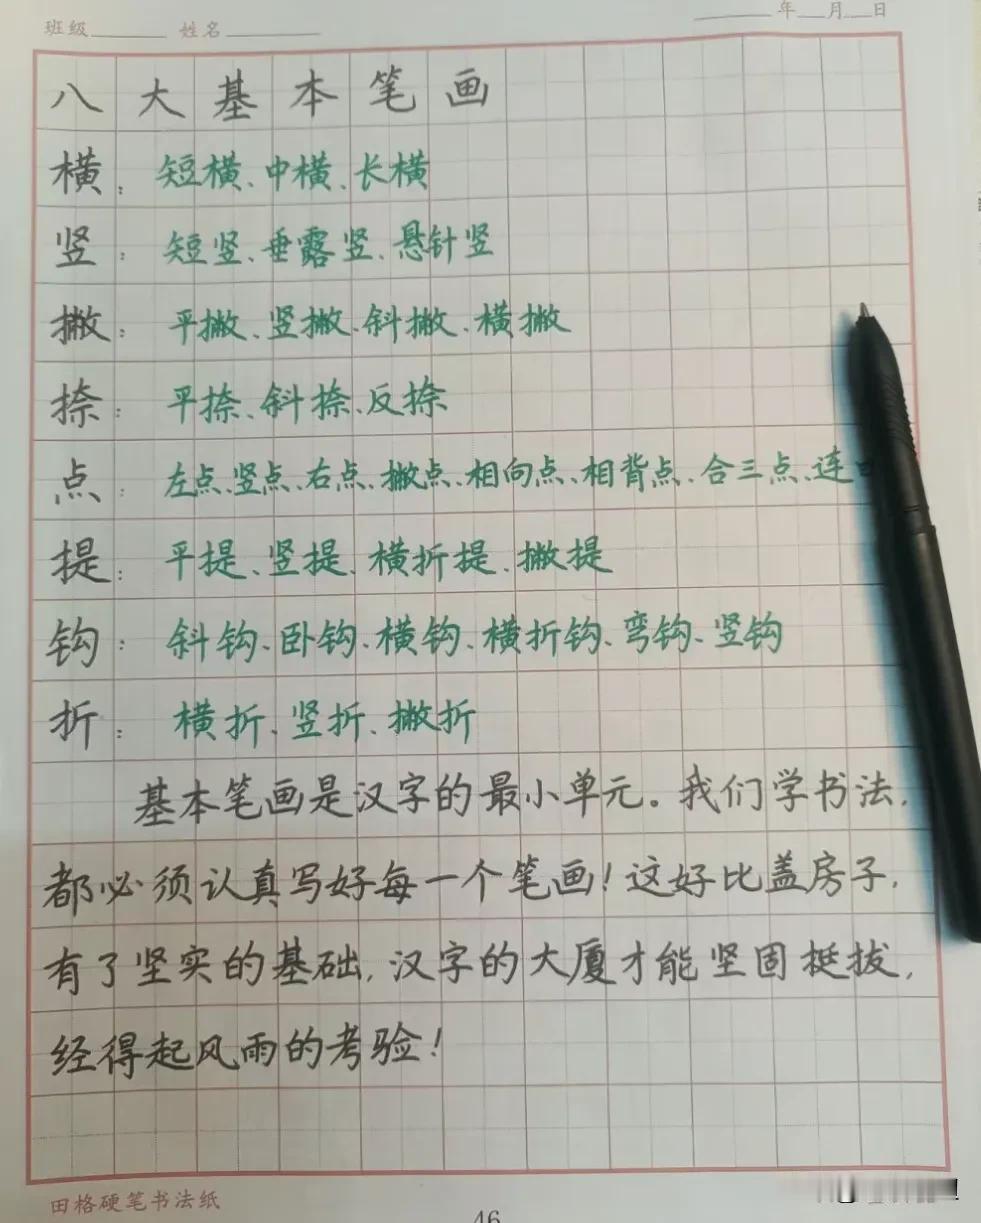 班级 姓名 年 月 日
八大基本笔画
横：短横、中横、长横
竖：短竖、垂露竖、悬针竖
撇：平撇、竖撇、斜撇、横撇
捺：平捺、斜捺、反捺
点：左点、竖点、右点、撇点、相向点、相背点、合三点、连
提：平提、竖提、横折提、撇提
钩：斜钩、卧钩、横钩、横折钩、弯钩、竖钩
折：横折、竖折、撇折
基本笔画是汉字的最小单元。我们学书法，
都必须认真写好每一个笔画！这好比盖房子，
有了坚实的基础，汉字的大厦才能坚固挺拔，
经得起风雨的考验！
田格硬笔书法纸
46